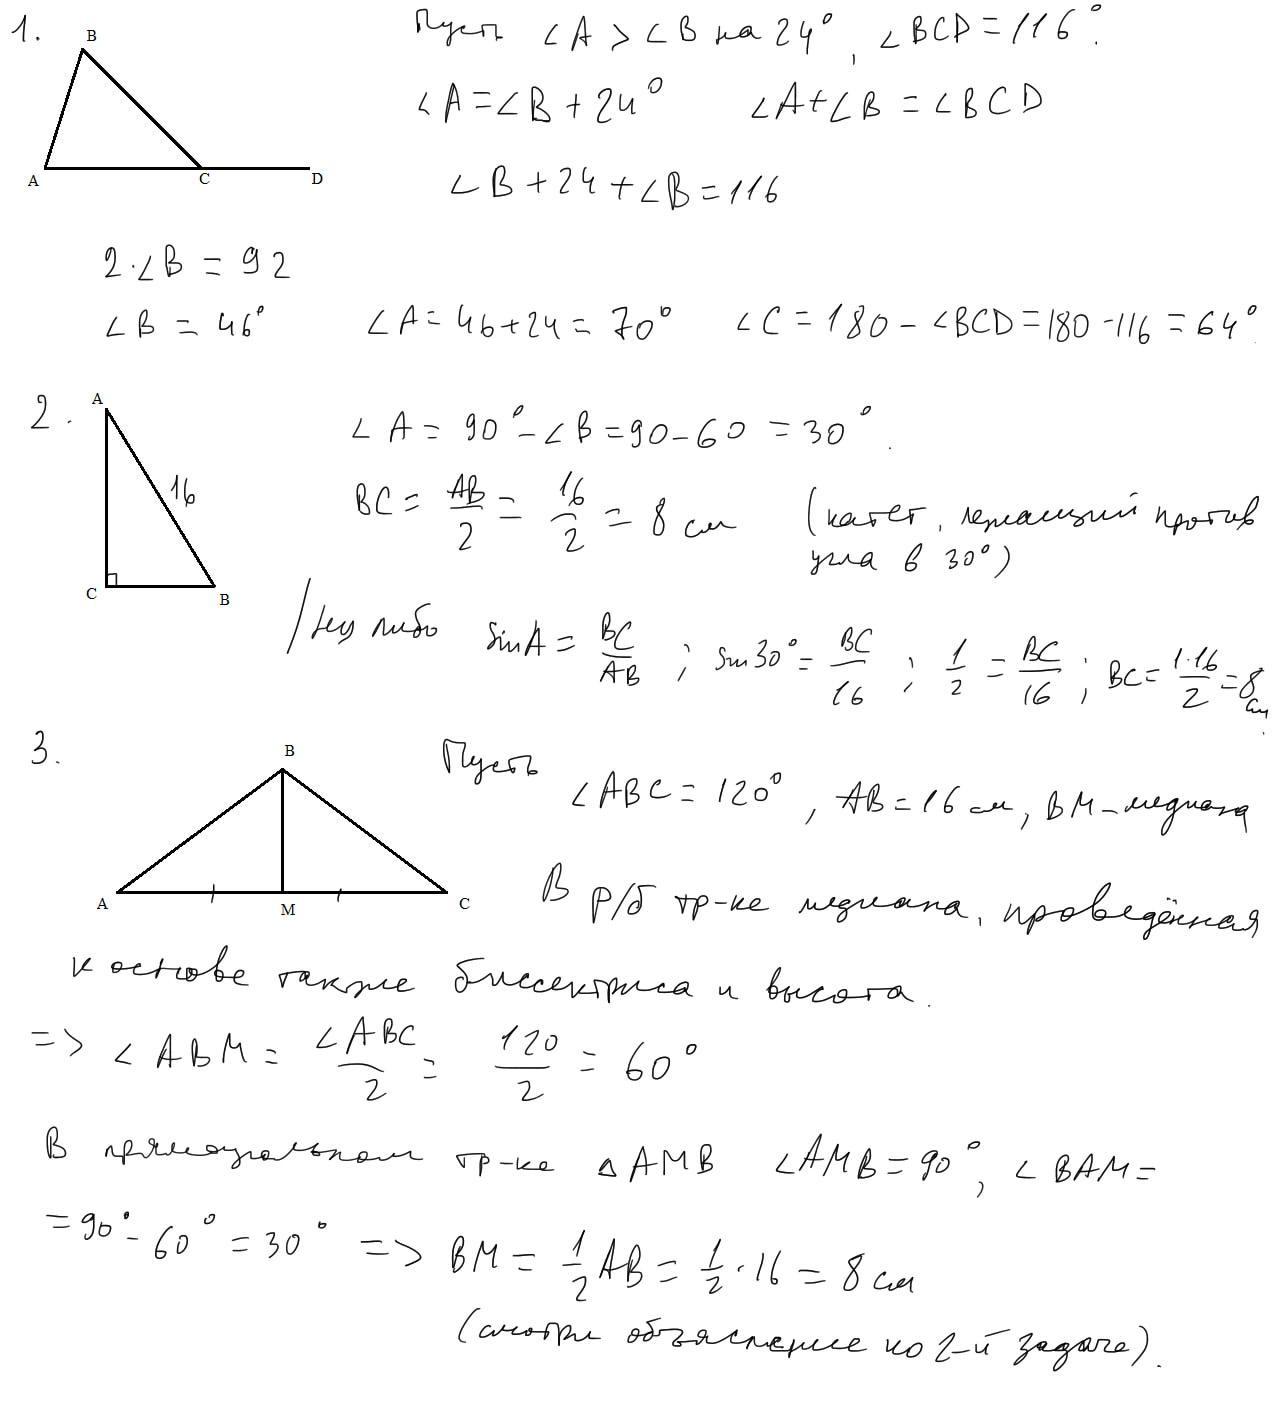 1.
B
A
C
D
Пусть ∠A > ∠B на 24°, ∠BCD = 116°.
∠A = ∠B + 24° ∠A + ∠B = ∠BCD
∠B + 24 + ∠B = 116
2·∠B = 92
∠B = 46° ∠A = 46 + 24 = 70° ∠C = 180 - ∠BCD = 180 - 116 = 64°.
2.
A
16
C
B
∠A = 90° - ∠B = 90 - 60 = 30°.
BC = AB/2 = 16/2 = 8 см (катет, лежащий против
угла в 30°)
/Ну либо sin A = BC/AB ; sin 30° = BC/16 ; 1/2 = BC/16 ; BC = 1·16/2 = 8 см.
3.
B
A
M
C
Пусть ∠ABC = 120°, AB = 16 см, BM - медиана
В р/б тр-ке медиана, проведённая
к основе также биссектриса и высота.
=> ∠ABM = ∠ABC/2 = 120/2 = 60°
В прямоугольном тр-ке △AMB ∠AMB = 90°, ∠BAM =
= 90° - 60° = 30° => BM = 1/2 AB = 1/2 · 16 = 8 см
(смотри объяснение ко 2-й задаче).